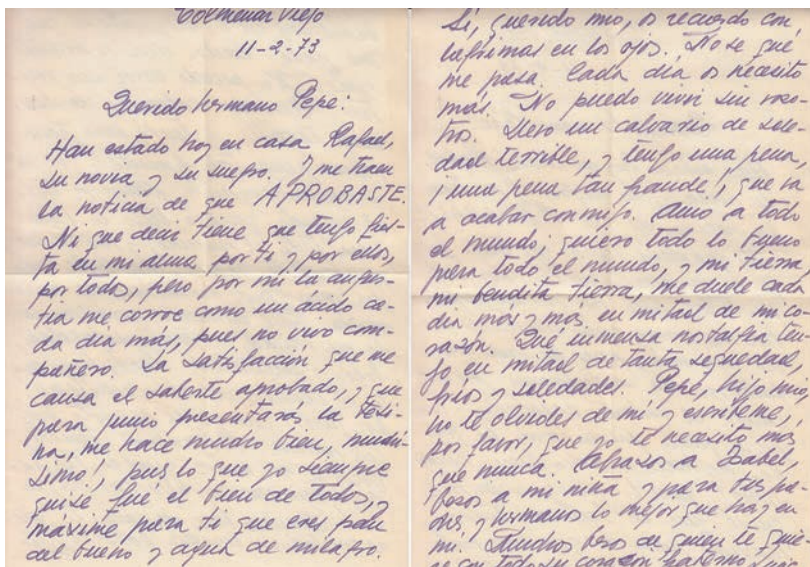 Colmenar Viejo
11-2-73
Querido hermano Pepe:
Han estado hoy en casa Rafael,
su novia y su suegro. Y me traen
la noticia de que APROBASTE.
Ni que decir tiene que tengo fies-
ta en mi alma por ti y por ellos,
por todos, pero por mí la angus-
tia me corroe como un ácido ca-
da día más, pues no vivo com-
pañero. La satisfacción que me
causa el saberte aprobado, y que
para junio presentarás la tesi-
na, me hace mucho bien, ¡muchí-
simo!, pues lo que yo siempre
quise fué el bien de todos, y
máxime para ti que eres pan
del bueno y agua de milagro.
Sí, querido mío, os recuerdo con
lágrimas en los ojos. No se qué
me pasa. Cada día os necesito
más. No puedo vivir sin voso-
tros. Llevo un calvario de sole-
dad terrible, y tengo una pena,
¡una pena tan grande!, que va
a acabar conmigo. Amo a todo
el mundo; quiero todo lo bueno
para todo el mundo, y mi tierra,
mi bendita tierra, me duele cada
día más y más en mitad de mi co-
razón. Qué inmensa nostalgia ten-
go en mitad de tanta sequedad,
fríos y soledades. Pepe, hijo mío,
no te olvides de mí y escríbeme,
por favor, que yo te necesito más
que nunca. Abrazos a Isabel,
besos a mi niña y para tus pa-
dres y hermanos lo mejor que hay en
mí. Muchos besos de quien te quie-
re con todo su corazón fraterno